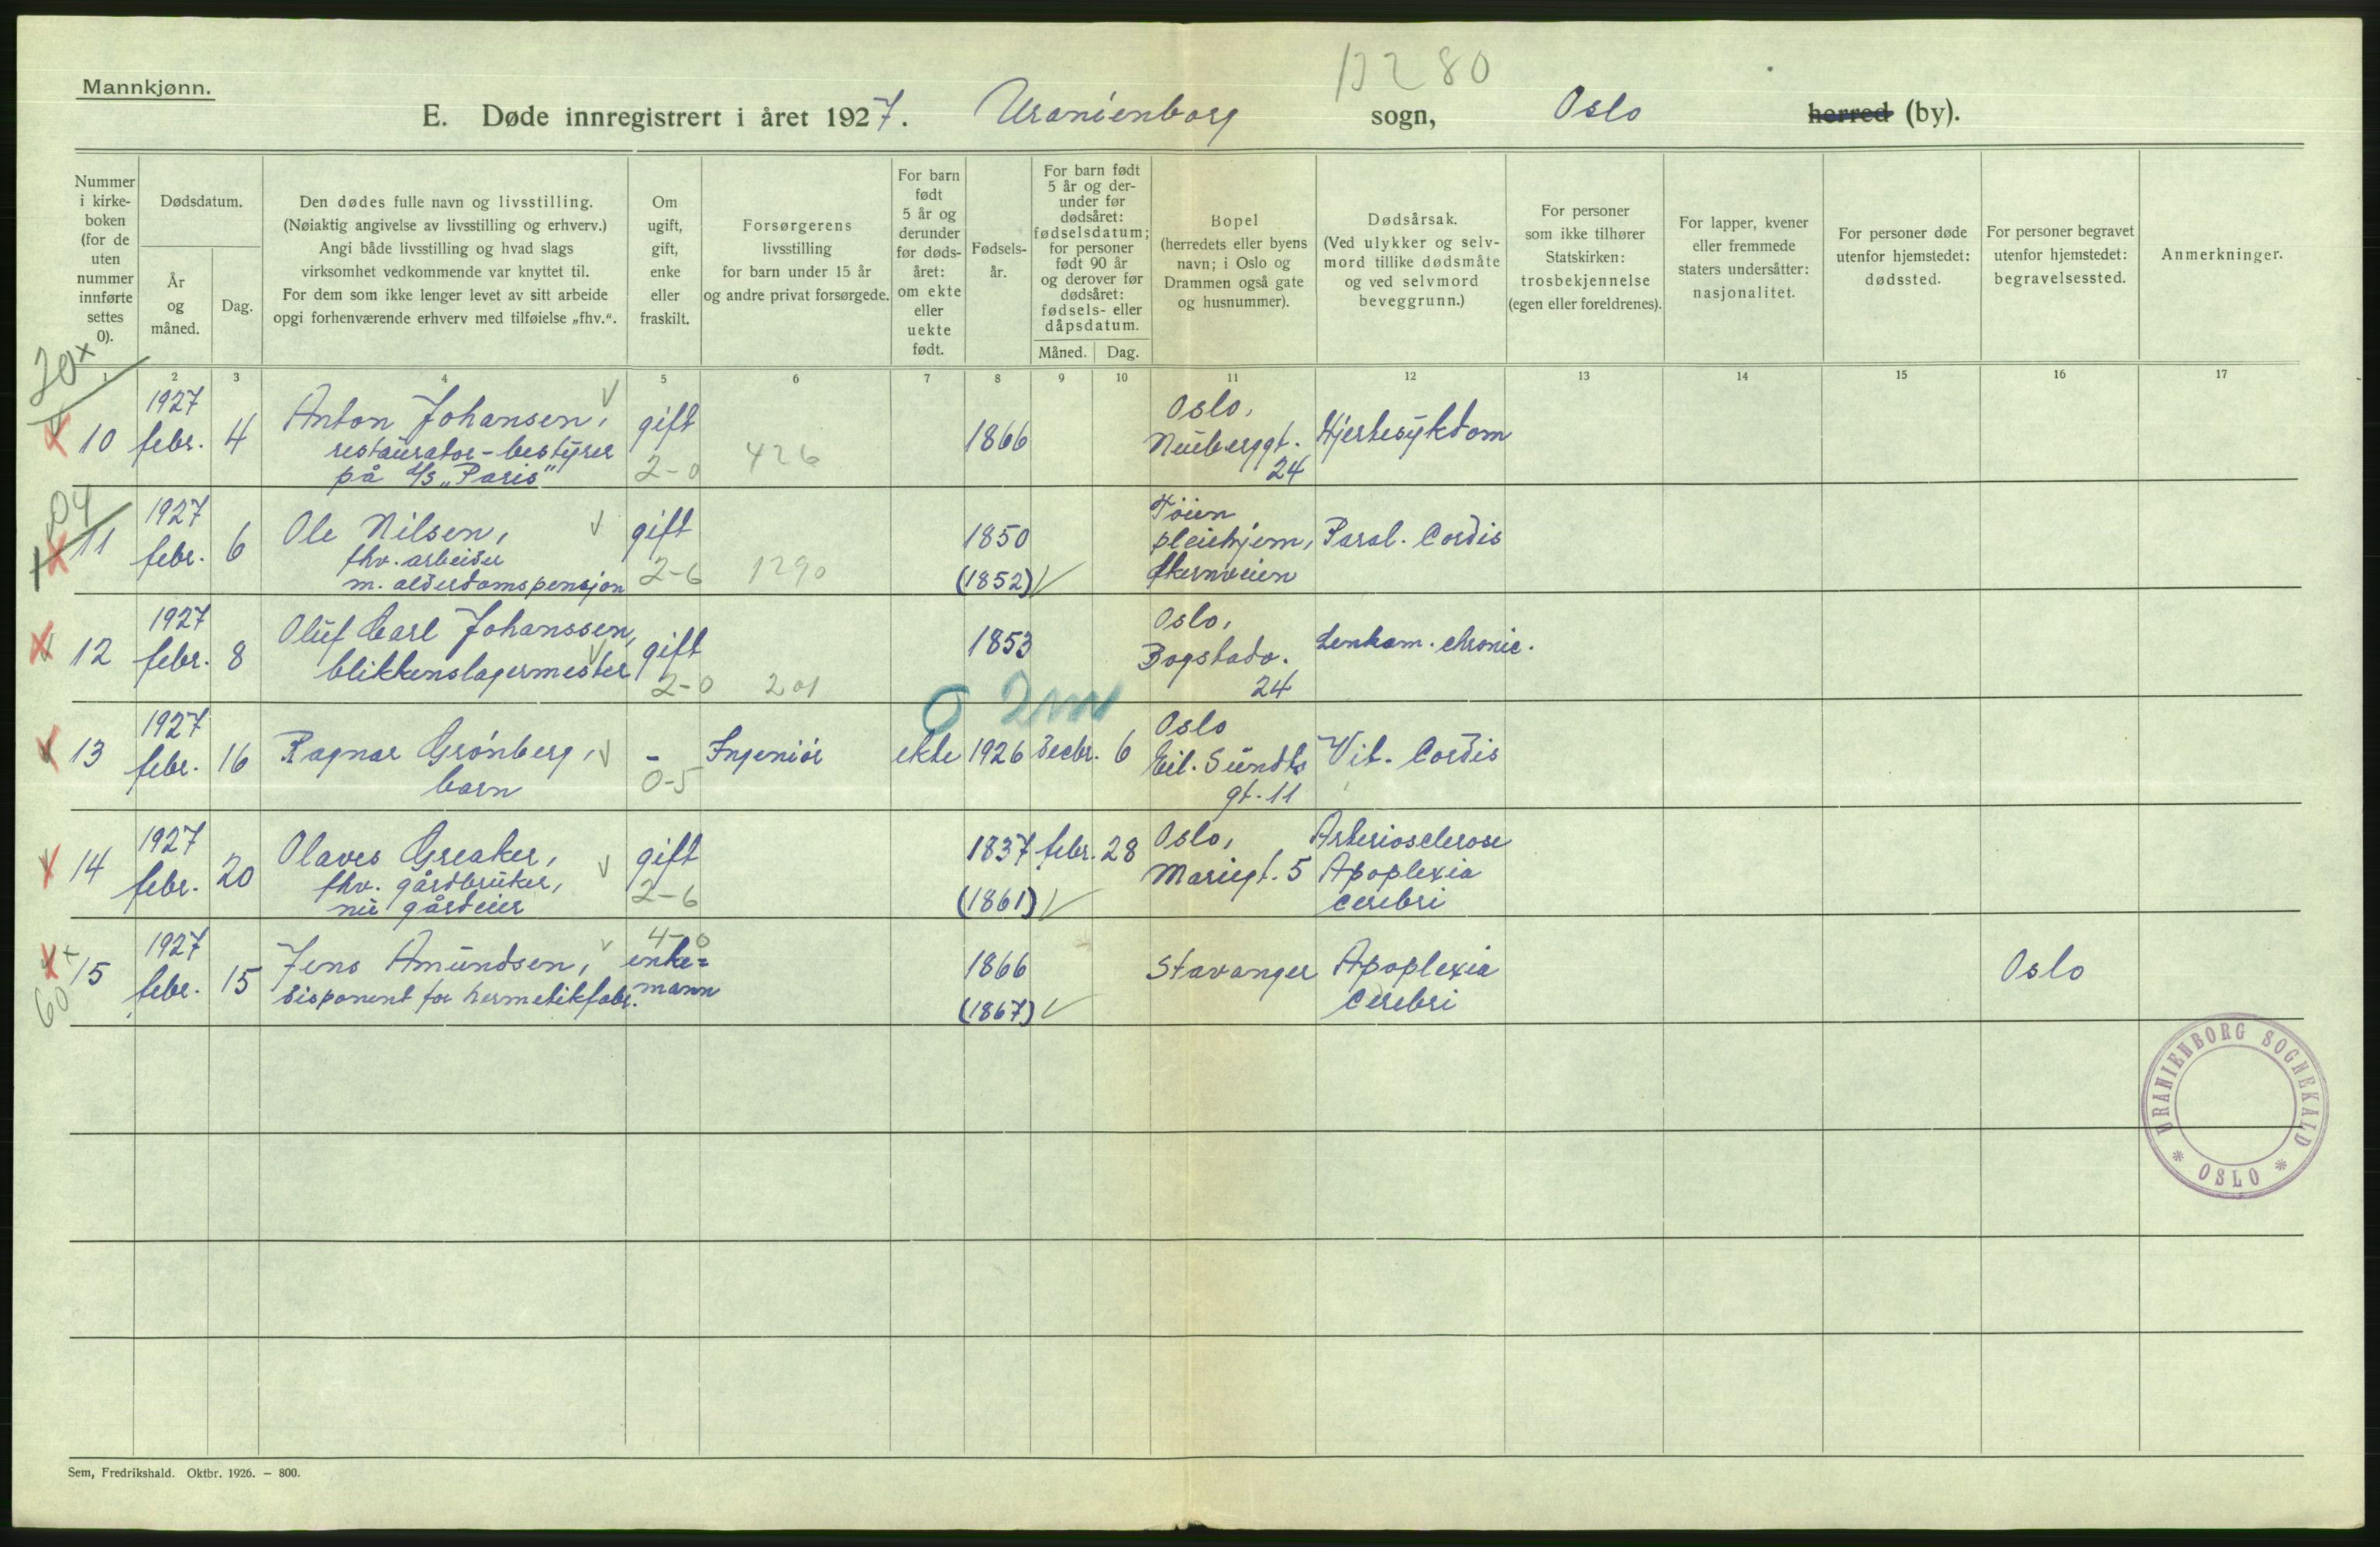 Mannkjønn.
E. Døde innregistrert i året 1927. Uranienborg sogn, Oslo herred (by).
Nummer i kirkeboken (for de uten nummer innførte settes 0).
Dødsdatum.
År og måned.
Dag.
Den dødes fulle navn og livsstilling.
(Nøiaktig angivelse av livsstilling og erhverv.)
Angi både livsstilling og hvad slags
virksomhet vedkommende var knyttet til.
For dem som ikke lenger levet av sitt arbeide
opgi forhenværende erhverv med tilføielse „fhv.“.
Om ugift, gift, enke eller fraskilt.
Forsørgerens
livsstilling
for barn under 15 år
og andre privat forsørgede.
For barn født 5 år og derunder før dødsåret: om ekte eller uekte født.
Fødselsår.
For barn født 5 år og derunder før dødsåret: fødselsdatum; for personer født 90 år og derover før dødsåret: fødsels- eller dåpsdatum.
Måned. Dag.
Bopel
(herredets eller byens
navn; i Oslo og
Drammen også gate
og husnummer).
Dødsårsak.
(Ved ulykker og selvmord tillike dødsmåte
og ved selvmord
beveggrunn.)
For personer
som ikke tilhører
Statskirken:
trosbekjennelse
(egen eller foreldrenes).
For lapper, kvener
eller fremmede
staters undersåtter:
nasjonalitet.
For personer døde
utenfor hjemstedet:
dødssted.
For personer begravet
utenfor hjemstedet:
begravelsessted.
Anmerkninger.
1 2 3 4 5 6 7 8 9 10 11 12 13 14 15 16 17
10 1927 febr. 4 Anton Johansen, gift 1866 Oslo, Hjertesykdom
restauratør-bestyrer Neuberggt.
på "Paris" 2-0 426 24
11 1927 febr. 6 Ole Nilsen, gift 1850 Tøien Paral. Cordis
fhv. arbeider pleiehjem,
m. alderdomspensjon 2-6 1290 (1852) Økernveien
12 1927 febr. 8 Oluf Carl Johanssen, gift 1853 Oslo, chronic.
blikkenslagermester Bogstadv.
2-0 201 24
13 1927 febr. 16 Ragnar Grønberg, - Ingeniør ekte 1926 decbr. 6 Oslo Vit. Cordis
barn 0-5 Eil. Sundts
gt. 11
14 1927 febr. 20 Olaves Greaker, gift 1837 febr. 28 Oslo, Arteriosclerose
fhv. gårdbruker, Mariegt. 5 Apoplexia
nu gårdeier 2-6 (1861) cerebri
15 1927 febr. 15 Jens Amundsen, 4-0 enke= 1866 Stavanger Apoplexia Oslo
disponent for hermetikfabr. mann (1867) cerebri
URANIENBORG SOGNEKALD
* OSLO *
Sem, Fredrikshald. Oktbr. 1926. – 800.